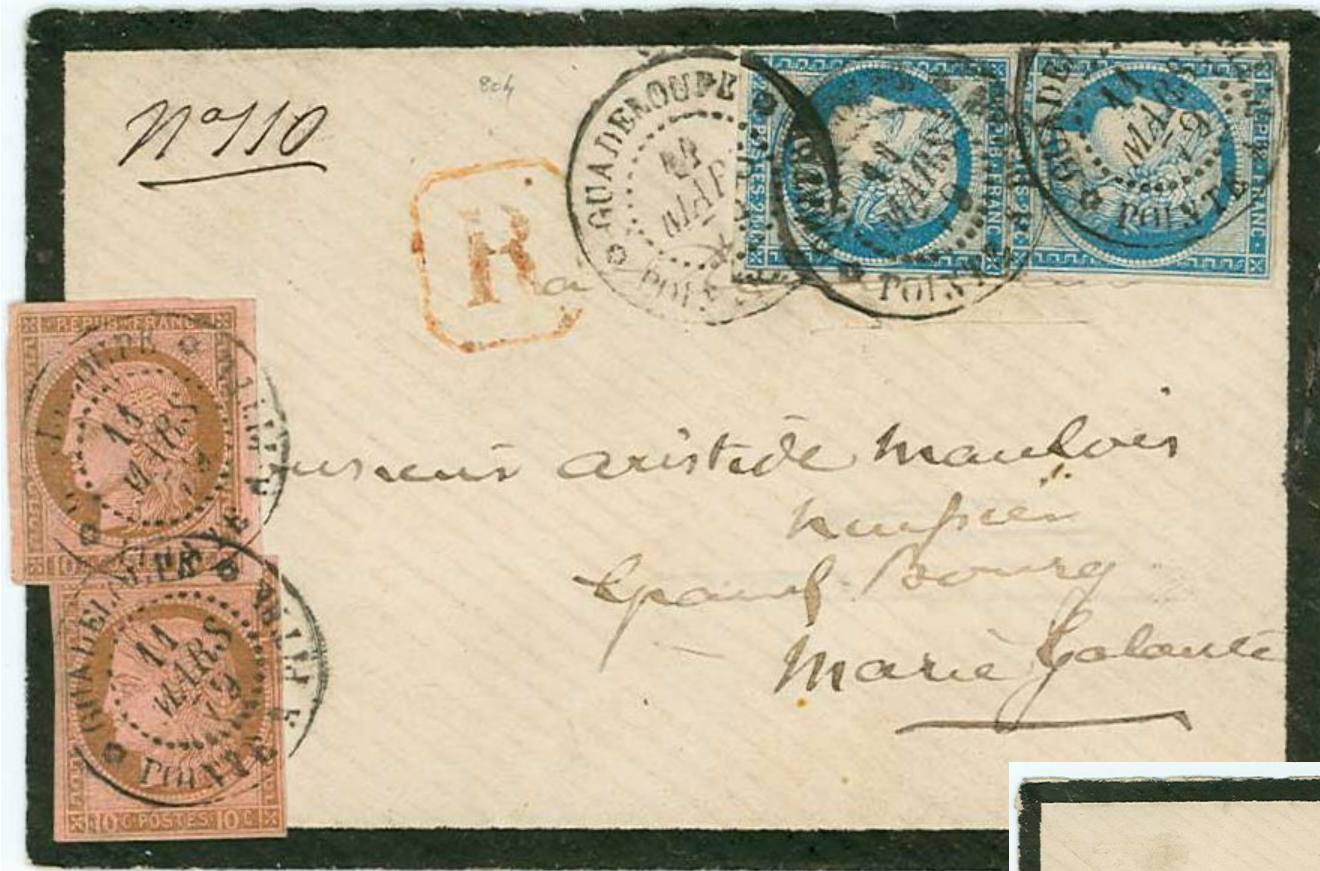 N° 110
804
R
GUADELOUPE
11
MAR
POI
REPUB FRANC
POSTES
11
MARS
POINTE
REPUB FRANC
GUADE
11
MARS
79
POINTE
REPUB FRANC
11
MARS
10
GUADELOUPE
11
MARS
79
POINTE A PITRE
10 C POSTES 10 C
Monsieur Aristide Maulois
Grand Bourg
Marie Galante